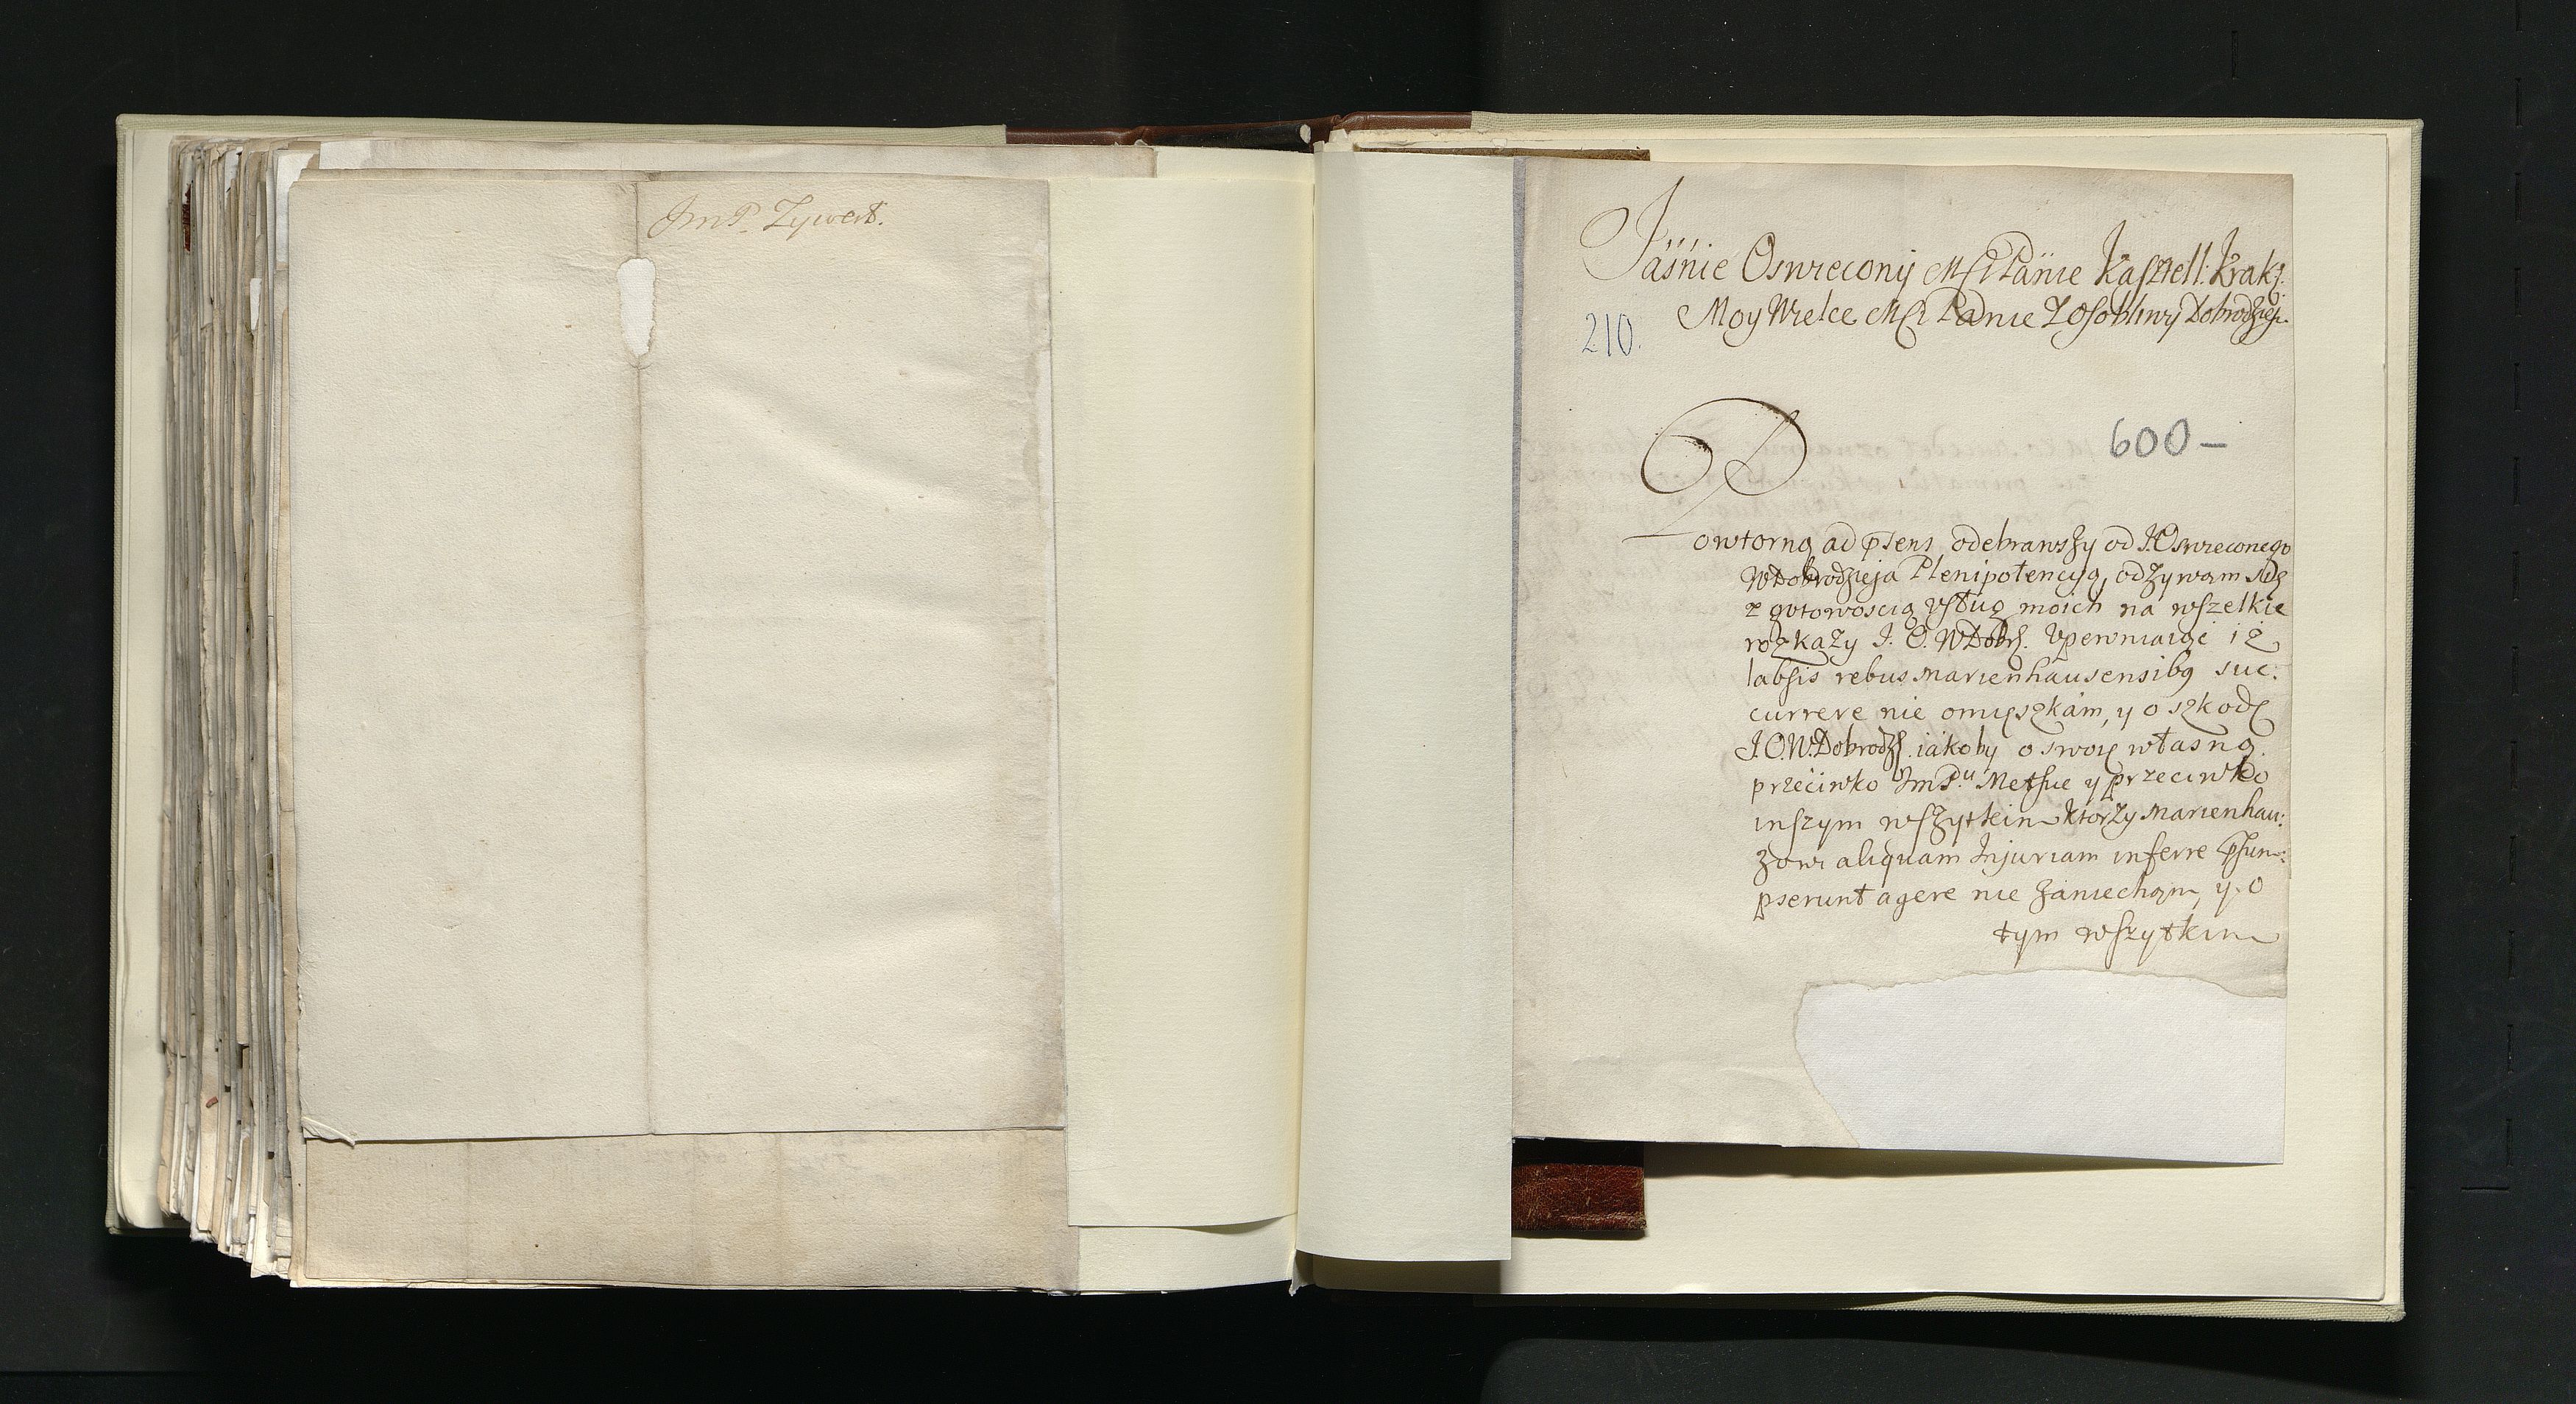 JmP. Zywert.
Jaśnie Oswieconÿ MSci Panie Kasztell: Krak:
Moy Wielce MSci Panie Z Osobliwy Dobrodzieju.
210.
600 –
Powtorną ad psens odebrawszy od J.Oswieconego
WDobrodzieja Plenipotencyą, odzywam się
z gotowoscią usług moich na wszelkie
rozkazy J. O. WDobr. Upewniaiąc iż
labsis rebus Marienhausensibus suc:
currere nie omięszkam, y o szkodę
J.O.W.Dobrodz. iakoby o swoię własną.
przeciwko JmPu Metsue y przeciwko
inszym wszytkim ktorzy Marienhau:
zowi aliquam Injuriam inferre psum:
pserunt agere nie zaniecham, y o
tym wszytkim